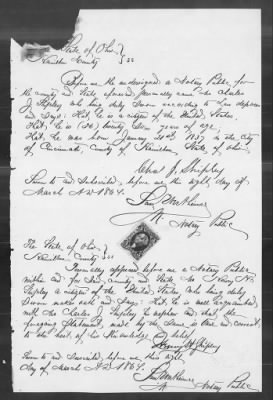 The State of Ohio }
Hamilton County } ss
Before me the undersigned a Notary Public for
the county and State aforesaid personally came Chas
J. Shipley who being duly Sworn according to Law deposes
and Says: that, he is a citizen of the United States,
that, he is (26) twenty Six years of age,
that, he was born January 20th 1837 in the City
of Cincinnati, County of Hamilton, State of Ohio,
Chas J. Shipley
Sworn to and Subscribed, before me this eight, day of
March A.D. 1864.
Notary Public
The State of Ohio }
Hamilton County } ss
Personally appeared before me a Notary Public
within and for Said, county and State Mr Henry N.
Shipley a citizen of the United States who being duly
Sworn makes oath and Says: that, he is well acquainted,
with the Charles J. Shipley and that, the
foregoing Statement, made by the Same is true and correct,
to the best, of his Knowledge and belief,
Henry N. Shipley
Sworn to and Subscribed, before me this eight
day of March A.D. 1864.
Notary Public